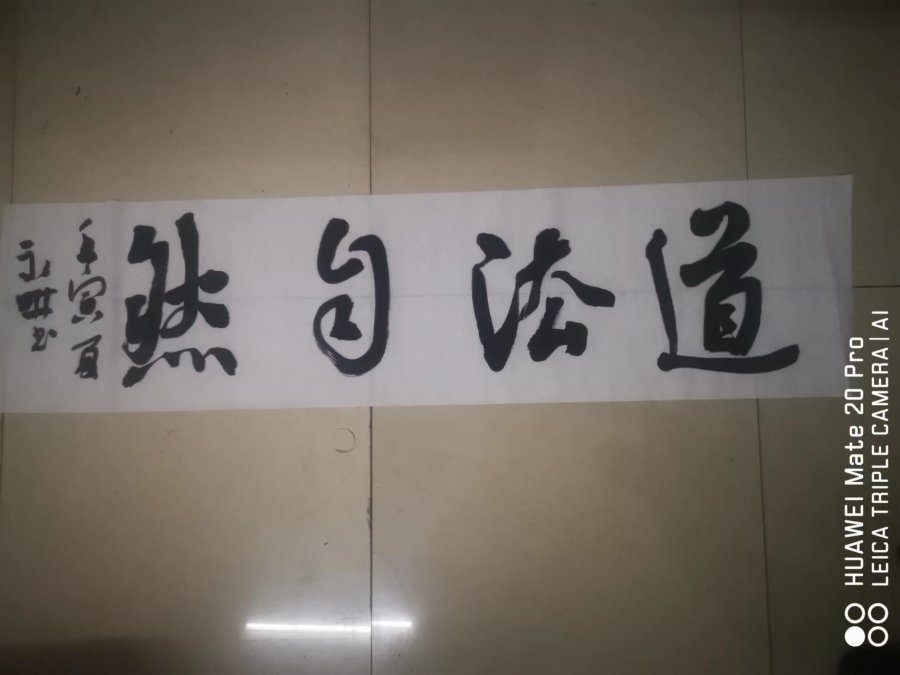 道法自然
壬寅夏
永书
HUAWEI Mate 20 Pro
LEICA TRIPLE CAMERA | AI